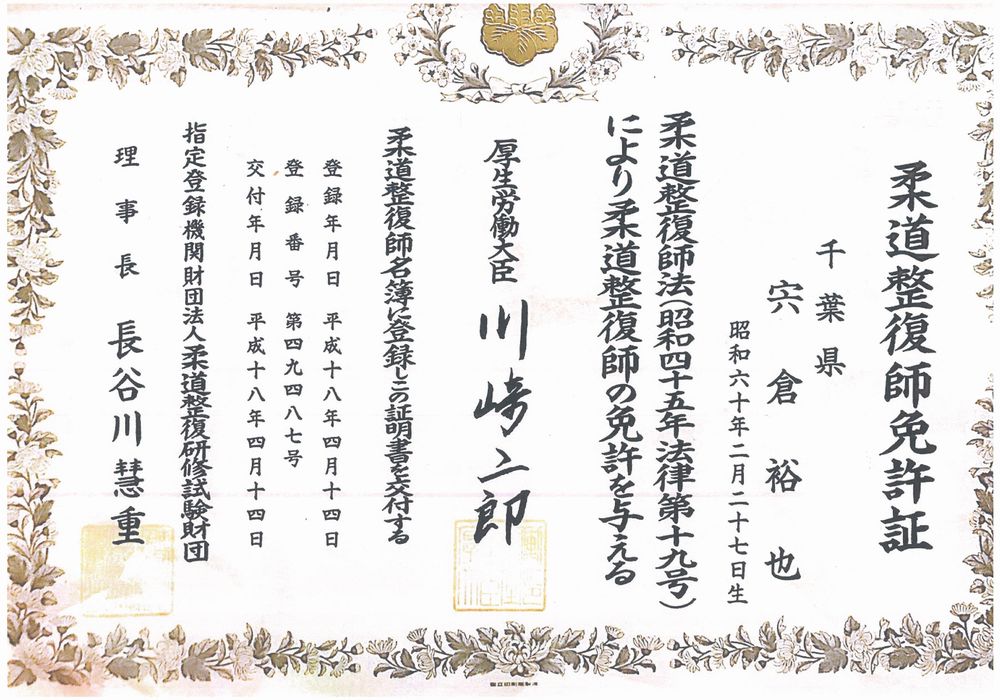 柔道整復師免許証
千葉県
宍倉裕也
昭和六十年二月二十七日生
柔道整復師法(昭和四十五年法律第十九号)
により柔道整復師の免許を与える
厚生労働大臣 川崎二郎
柔道整復師名簿に登録しこの証明書を交付する
登録年月日 平成十八年四月十四日
登録番号 第四九四八七号
交付年月日 平成十八年四月十四日
指定登録機関財団法人柔道整復研修試験財団
理事長 長谷川慧重